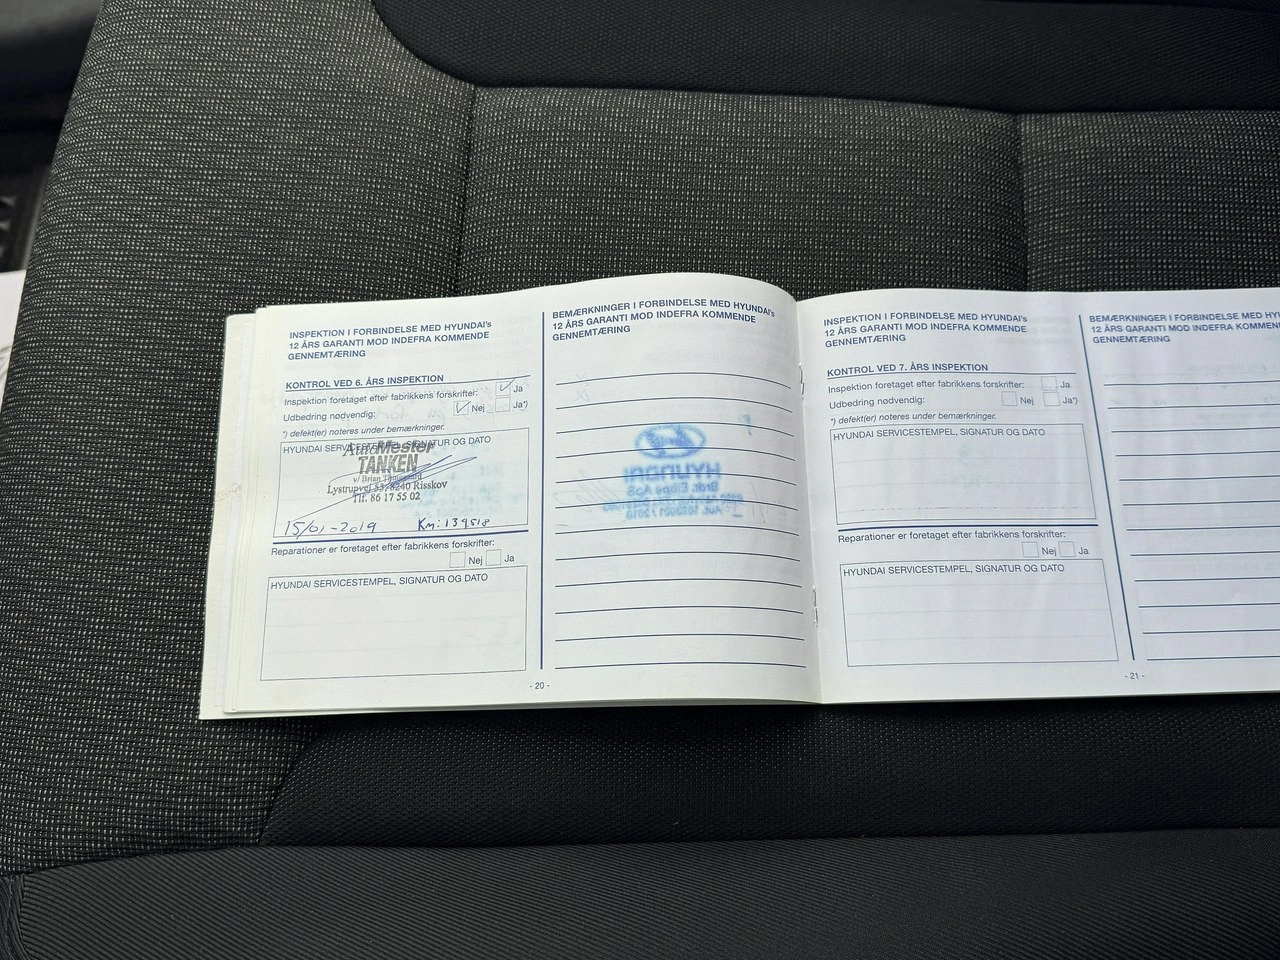 INSPEKTION I FORBINDELSE MED HYUNDAI's
12 ÅRS GARANTI MOD INDEFRA KOMMENDE
GENNEMTÆRING
KONTROL VED 6. ÅRS INSPEKTION
Inspektion foretaget efter fabrikkens forskrifter: Ja
Udbedring nødvendig: Nej Ja*)
*) defekt(er) noteres under bemærkninger.
HYUNDAI SERVICESTEMPEL, SIGNATUR OG DATO
AutoMester
TANKEN
v/ Brian
Lystrupvej 33, 8240 Risskov
Tlf. 86 17 55 02
15/01-2019 Km: 139518
Reparationer er foretaget efter fabrikkens forskrifter:
Nej Ja
HYUNDAI SERVICESTEMPEL, SIGNATUR OG DATO
- 20 -
BEMÆRKNINGER I FORBINDELSE MED HYUNDAI's
12 ÅRS GARANTI MOD INDEFRA KOMMENDE
GENNEMTÆRING
HYUNDAI
INSPEKTION I FORBINDELSE MED HYUNDAI's
12 ÅRS GARANTI MOD INDEFRA KOMMENDE
GENNEMTÆRING
KONTROL VED 7. ÅRS INSPEKTION
Inspektion foretaget efter fabrikkens forskrifter: Ja
Udbedring nødvendig: Nej Ja*)
*) defekt(er) noteres under bemærkninger.
HYUNDAI SERVICESTEMPEL, SIGNATUR OG DATO
Reparationer er foretaget efter fabrikkens forskrifter:
Nej Ja
HYUNDAI SERVICESTEMPEL, SIGNATUR OG DATO
- 21 -
BEMÆRKNINGER I FORBINDELSE MED HY
12 ÅRS GARANTI MOD INDEFRA KOMM
GENNEMTÆRING